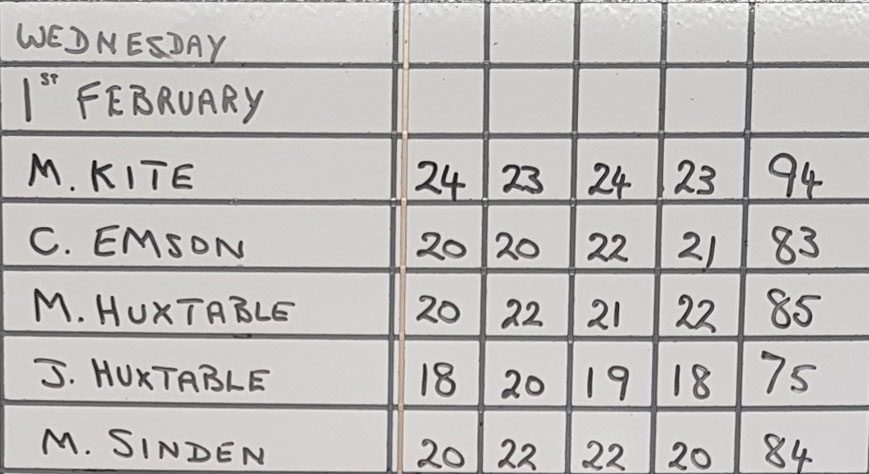 WEDNESDAY
1ST FEBRUARY
M. KITE 24 23 24 23 94
C. EMSON 20 20 22 21 83
M. HUXTABLE 20 22 21 22 85
J. HUXTABLE 18 20 19 18 75
M. SINDEN 20 22 22 20 84